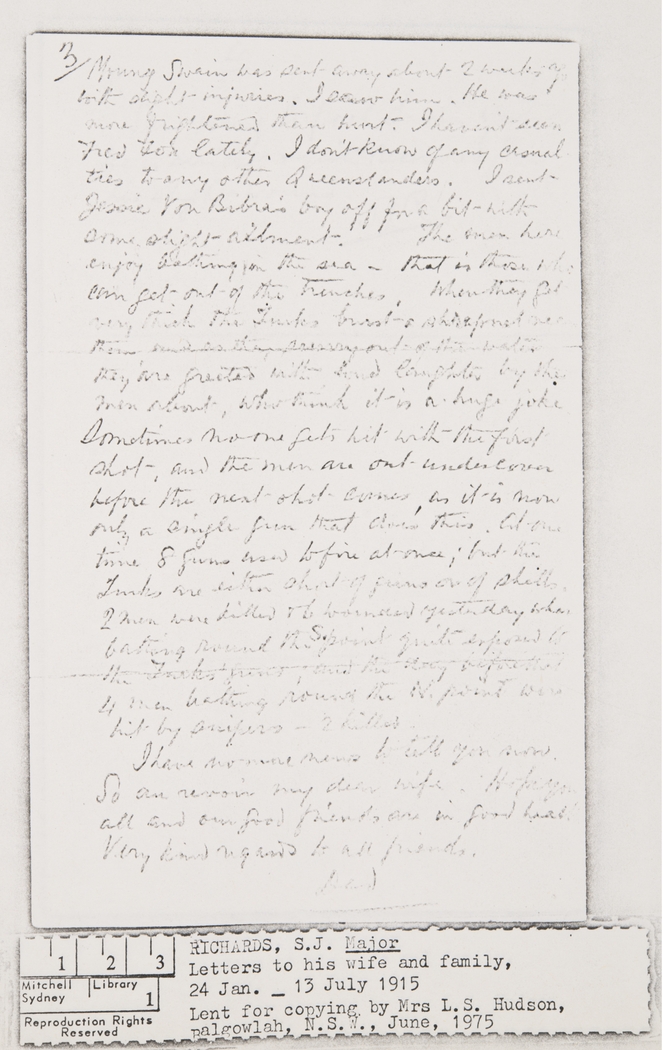 3/ Young Swain was sent away about 2 weeks ago
with slight injuries. I saw him. He was
more frightened than hurt. I haven't seen
Fred Cox lately. I don't know of any casual-
ties to any other Queenslanders. I sent
Jessie Von Bibra's boy off for a bit with
some slight ailment. The men here
enjoy bathing in the sea - that is those who
can get out of the trenches, When they get
very thick the Turks burst a shrapnel near
them and as they scurry out of the water
they are greeted with loud laughter by the
men about, who think it is a huge joke
Sometimes no one gets hit with the first
shot, and the men are out undercover
before the next shot comes, as it is now
only a single gun that does this. At one
time 8 guns used to fire at once; but the
Turks are either short of guns or of shells.
2 men were killed & 6 wounded yesterday when
bathing round the S point quite exposed to
the Turks' guns, and the day before that
4 men bathing round the N. point were
hit by snipers - 2 killed.
I have no more news to tell you now.
So au revoir my dear wife. Hope you
all and our good friends are in good health
Very kind regards to all friends.
1 2 3
Mitchell Library
Sydney 1
Reproduction Rights
Reserved
RICHARDS, S.J. Major
Letters to his wife and family,
24 Jan. _ 13 July 1915
Lent for copying by Mrs L.S. Hudson,
palgowlah, N.S.W., June, 1975